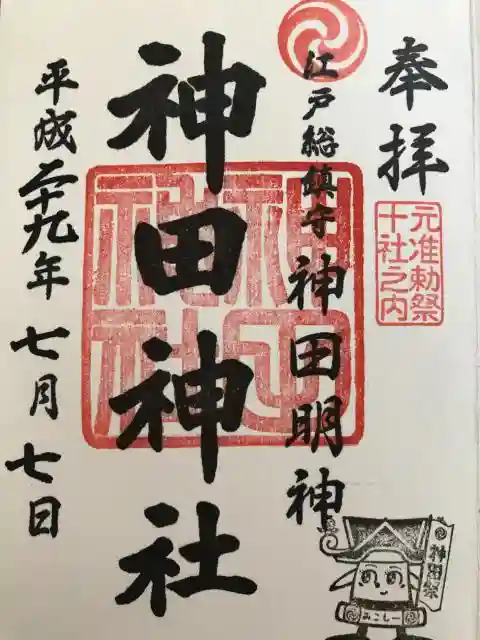 奉拝
元准勅祭
十社之内
江戸総鎮守 神田明神
神田神社
神田神社
平成二十九年 七月 七日
神田祭
みこしー